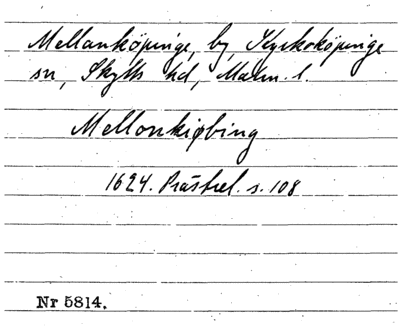 Mellanköpinge, by, Kyrkoköpinge
sn, Skytts hd, Malm. l.
Mellonkiøbing
1624. Prästrel. s. 108
Nr 5814.